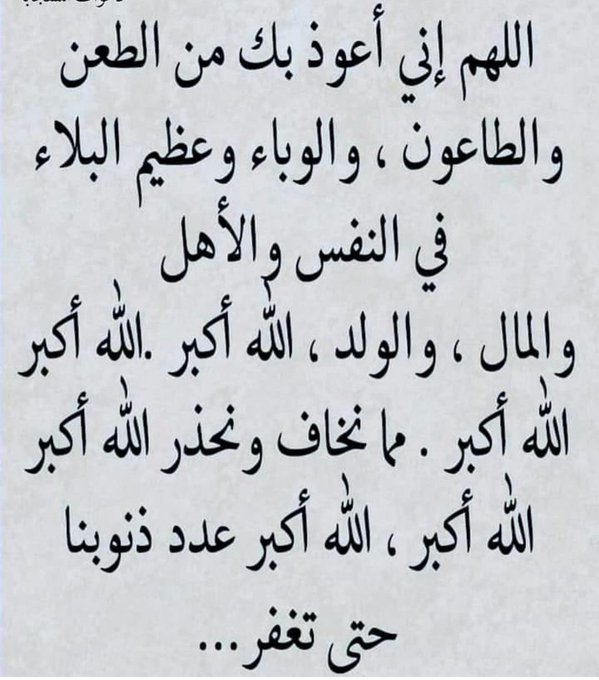 اللهم إني أعوذ بك من الطعن
والطاعون ، والوباء وعظيم البلاء
في النفس والأهل
والمال ، والولد ، الله أكبر .الله أكبر
الله أكبر . مما نخاف ونحذر الله أكبر
الله أكبر ، الله أكبر عدد ذنوبنا
حتى تغفر...